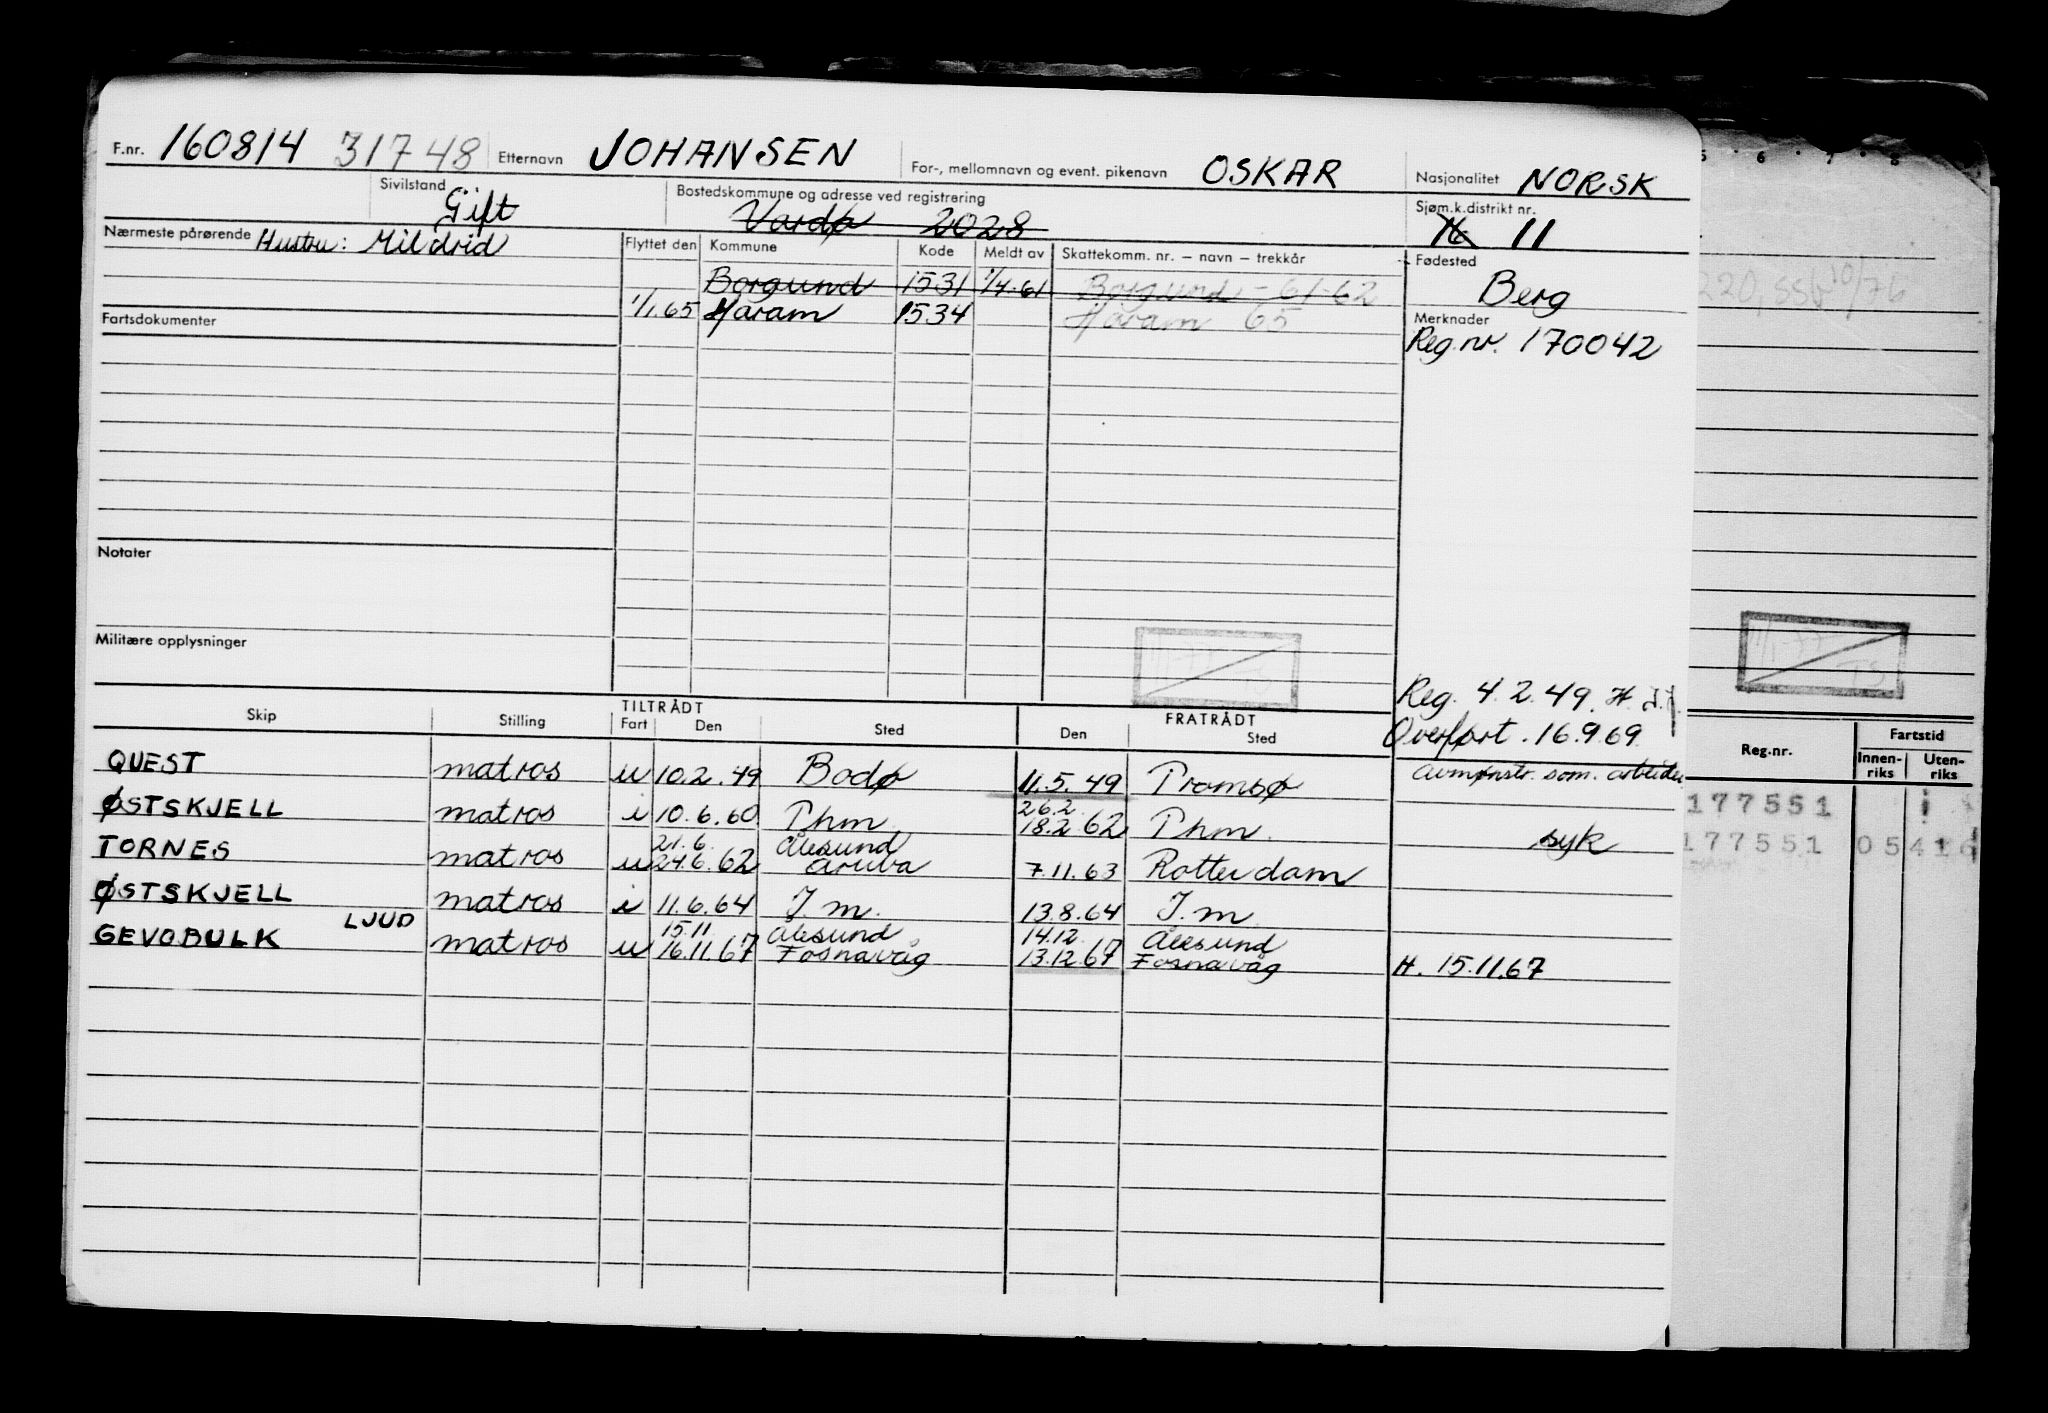 F.nr. 160814 31748 Etternavn JOHANSEN For-, mellomnavn og event. pikenavn OSKAR Nasjonalitet NORSK
Sivilstand Gift Bostedskommune og adresse ved registrering Vardø 2028 Sjøm.k.distrikt nr. 16 11
Nærmeste pårørende Hustru: Mildrid Flyttet den Kommune Kode Meldt av Skattekomm. nr. – navn – trekkår Fødested
Borgund 1531 1/4-61 Borgund - 61-62 Berg
1/1.65 Haram 1534 Haram 65
Fartsdokumenter Merknader
Reg.nr. 170042
Notater
Militære opplysninger
1/1-77
TS
Reg. 4.2.49. H.
Overført. 16.9.69
Skip Stilling TILTRÅDT Fart Den Sted FRATRÅDT Den Sted
QUEST matros u 10.2.49 Bodø 11.5.49 Tromsø Avmønstr. som. arbeider
ØSTSKJELL matros i 10.6.60 Thm. 26.2. 18.2 62 Thm. syk
TORNES matros u 21.6. 24.6.62 Ålesund Aruba 7.11.63 Rotterdam
ØSTSKJELL matros i 11.6.64 T.m. 13.8.64 T.m.
LJUD
GEVOBULK matros u 15.11 16.11.67 Ålesund Fosnavåg 14.12. 13.12.67 Ålesund Fosnavåg H. 15.11.67
5 · 6 · 7 · 8
220, SSV 10/76
1/1-77
TS
Reg.nr. Fartstid
Innen-riks Uten-riks
177551
177551 05416